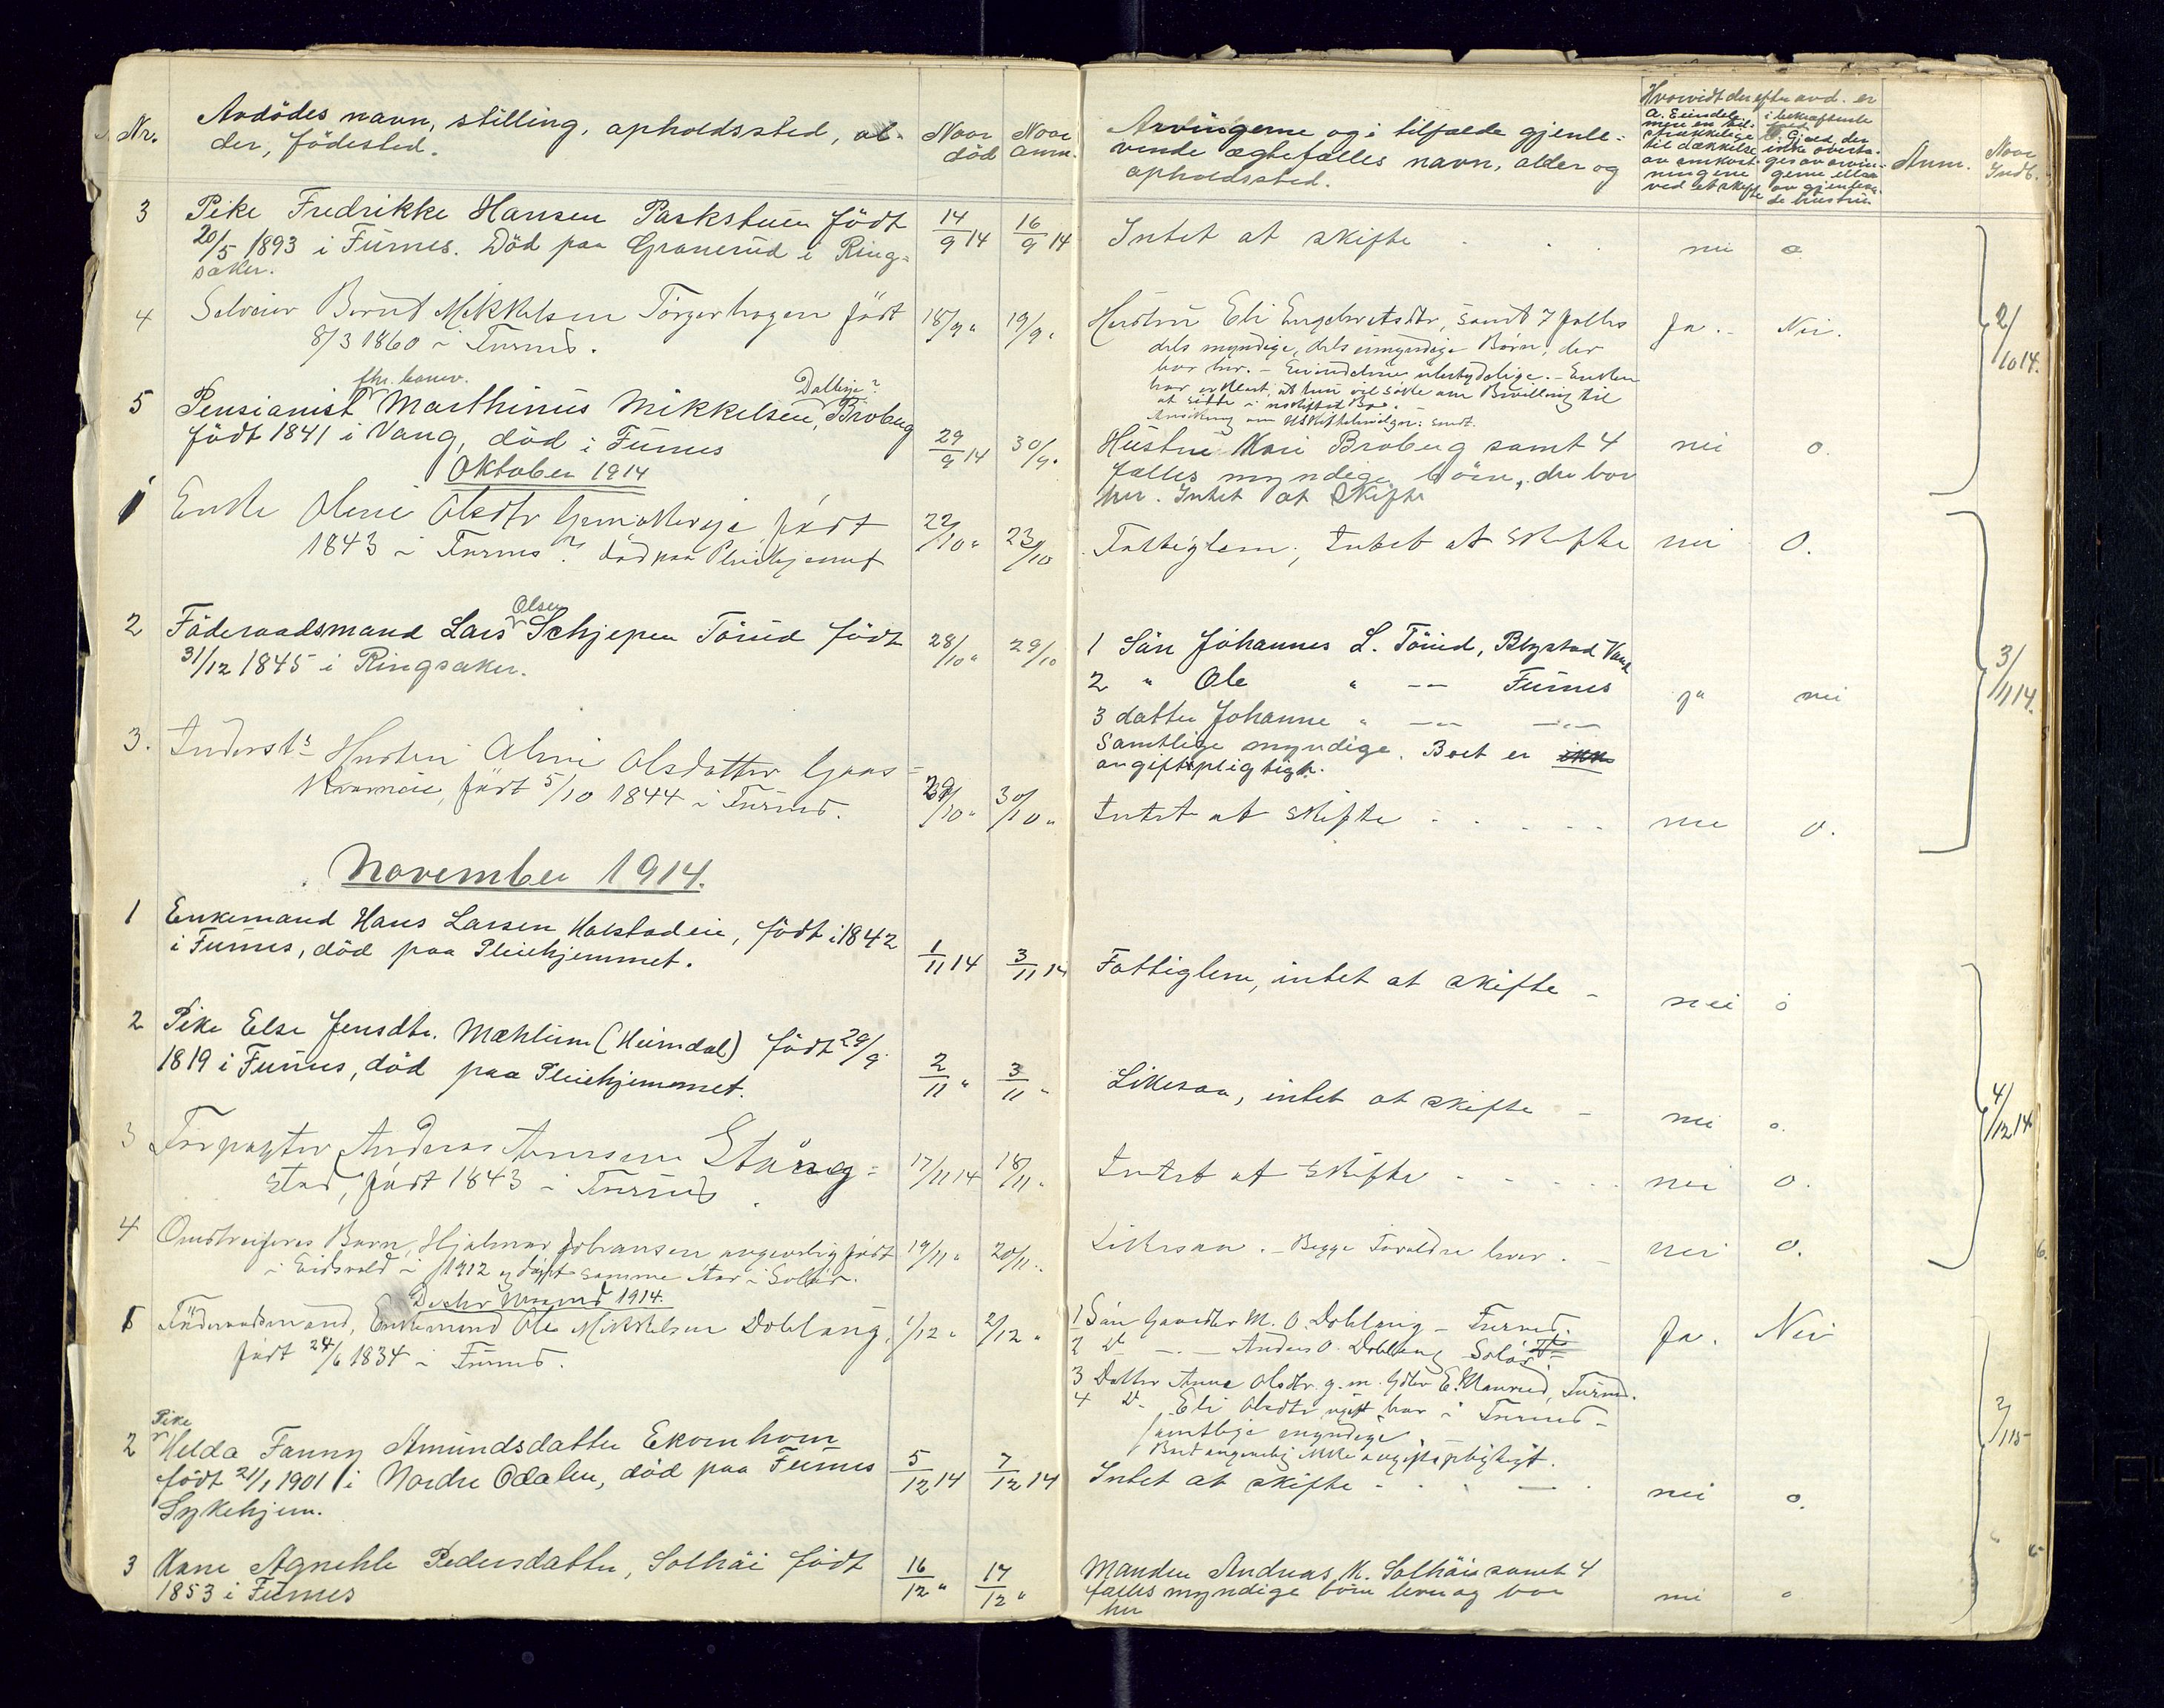 Nr.
Avdödes navn, stilling, opholdssted, al-
der, födested.
Naar död
Naar anm.
Arvingerne og i tilfælde gjenle-
vende ægtefælles navn, alder og
opholdssted.
Hvorvidt der efter avd. er
a. Eiendele
men en til-
strækkelige
til dækkelse
av omkost-
ningerne
ved et skifte
i bekræftende
b. Gjæld, der
ikke overta-
ges av arvin-
gerne eller
av gjenleven-
de hustru
Anm.
Naar Indb.
3 Pike Fredrikke Hansen Parkstuen født 14/9 14 16/9 14 Intet at skifte nei o
20/5 1893 i Furnes. Död paa Granerud i Ring-
saker.
4 Selveier Bernt Mikkelsen Torgerhagen født 18/9 " 19/9 " Hustru Eli Engebretsdtr, samt 7 fælles Ja. Nei.
8/3 1860 i Furnes.
dels myndige, dels umyndige Børn, der
bor her. - Eiendelene ubetydelige. - Enken
har erklært, at hun vil søke om Bevilling til
at sitte i uskiftet Bo.
2/10 14.
fhv. banev. Dallinje?
5 Pensionist Marthinus Mikkelsen, Broberg
født 1841 i Vang, död i Furnes 29/9 14 30/9. Hustru Kari Broberg samt 4 nei o.
fælles myndige börn, der bor
her. Intet at skifte
Oktober 1914
1 Enke Oline Olsdtr født 22/10 " 23/10 Fattiglem, Intet at skifte nei o.
1843 i Furnes? død paa Pleiehjemmet
2 Föderaadsmand Lars Olsen Schjepen Törud födt 28/10 " 29/10 1 Sön Johannes L. Törud, Blystad Vand
31/12 1845 i Ringsaker.
2 " Ole " -- Furnes ja nei
3 datter Johanne " -- --
Samtlige myndige. Boet er ikke
avgiftspligtigt.
3/11 14.
3. Inderst's Hustru Oline Olsdatter Gaas-
født 5/10 1844 i Furnes. 29/10 " 30/10 " Intet at skifte nei o.
November 1914.
1 Enkemand Hans Larsen Kolstadeie, födt i 1842
i Furnes, död paa Pleiehjemmet. 1/11 14 3/11 14 Fattiglem, intet at skifte - nei o
2 Pike Else Jensdtr. Mæhlum (Heimdal) födt 29/9
1819 i Furnes, död paa Pleiehjemmet. 2/11 " 3/11 " Likesaa, intet at skifte - nei o.
4/12 14
3 Forpagter Andreas Arnesen Stang-
stad, født 1843 i Furnes. 17/11 14 18/11 " Intet at skifte nei o.
4 Omstreifers Barn, Hjalmar Johansen angivelig født 19/11 " 20/11 " Likesaa. - Begge Forældre lever. nei o.
i Eidsvold i 1912 og døpt samme Aar i Solør.
December Maaned 1914.
1 Föderaadsmand, Enkemand Ole Mikkelsen Doblaug, 1/12 " 2/12 " 1 Søn Gaardbr M. O. Doblaug - Furnes. Ja. Nei
født 24/6 1834 i Furnes.
2 D - Anders O. Doblaug Solør.
3 Datter Anne Olsdtr. g. m. Gdbr E. Maurud, Furnes.
4 D. Eli Olsdtr ugift bor i Furnes -
samtlige myndige.
Boet angivelig ikke avgiftspligtigt.
2/1 15
Pike
2 Helda Fanny Amundsdatter Ekornhom
födt 21/1 1901 i Nordre Odalen, död paa Furnes 5/12 14 7/12 14 Intet at skifte nei o.
Sykehjem.
3 Kone Agnethe Pedersdatter, Solhöi födt 16/12 " 17/12 " Manden Andreas M. Solhöi samt 4
1853 i Furnes
fælles myndige börn lever og bor nei o
her